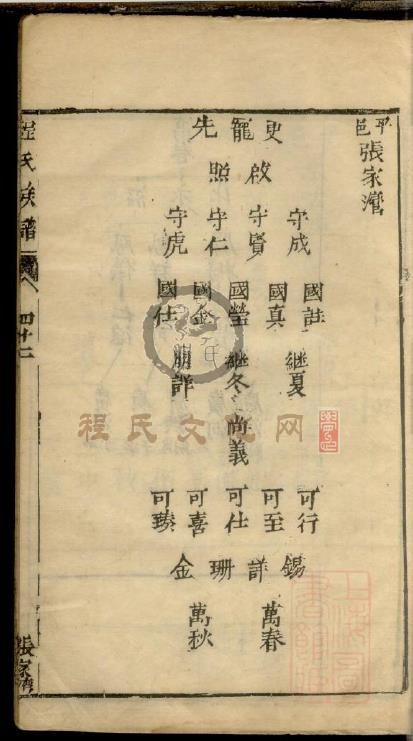 平邑張家灣
守成 國註 繼夏 可行 錫
叟啟 守賢 國真 可至 詳 萬春
龍 守仁 國瑩 繼冬 尚義 可仕 珊
先照 國金 可喜 萬秋
守虎 國仕 朋詳 可臻 金
程氏族譜
四十二
張家灣
程氏文化网